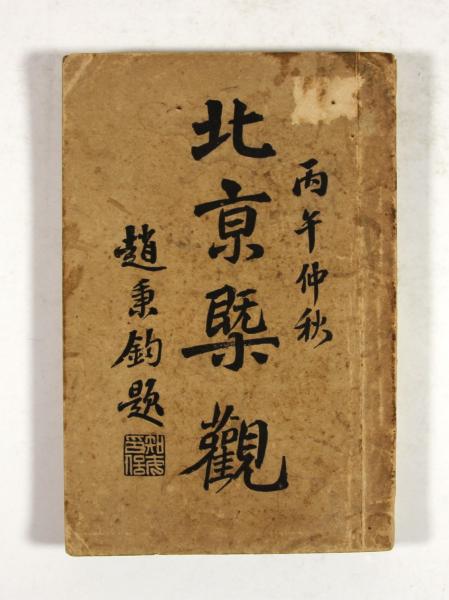 丙午仲秋
北京槩觀
趙秉鈞題